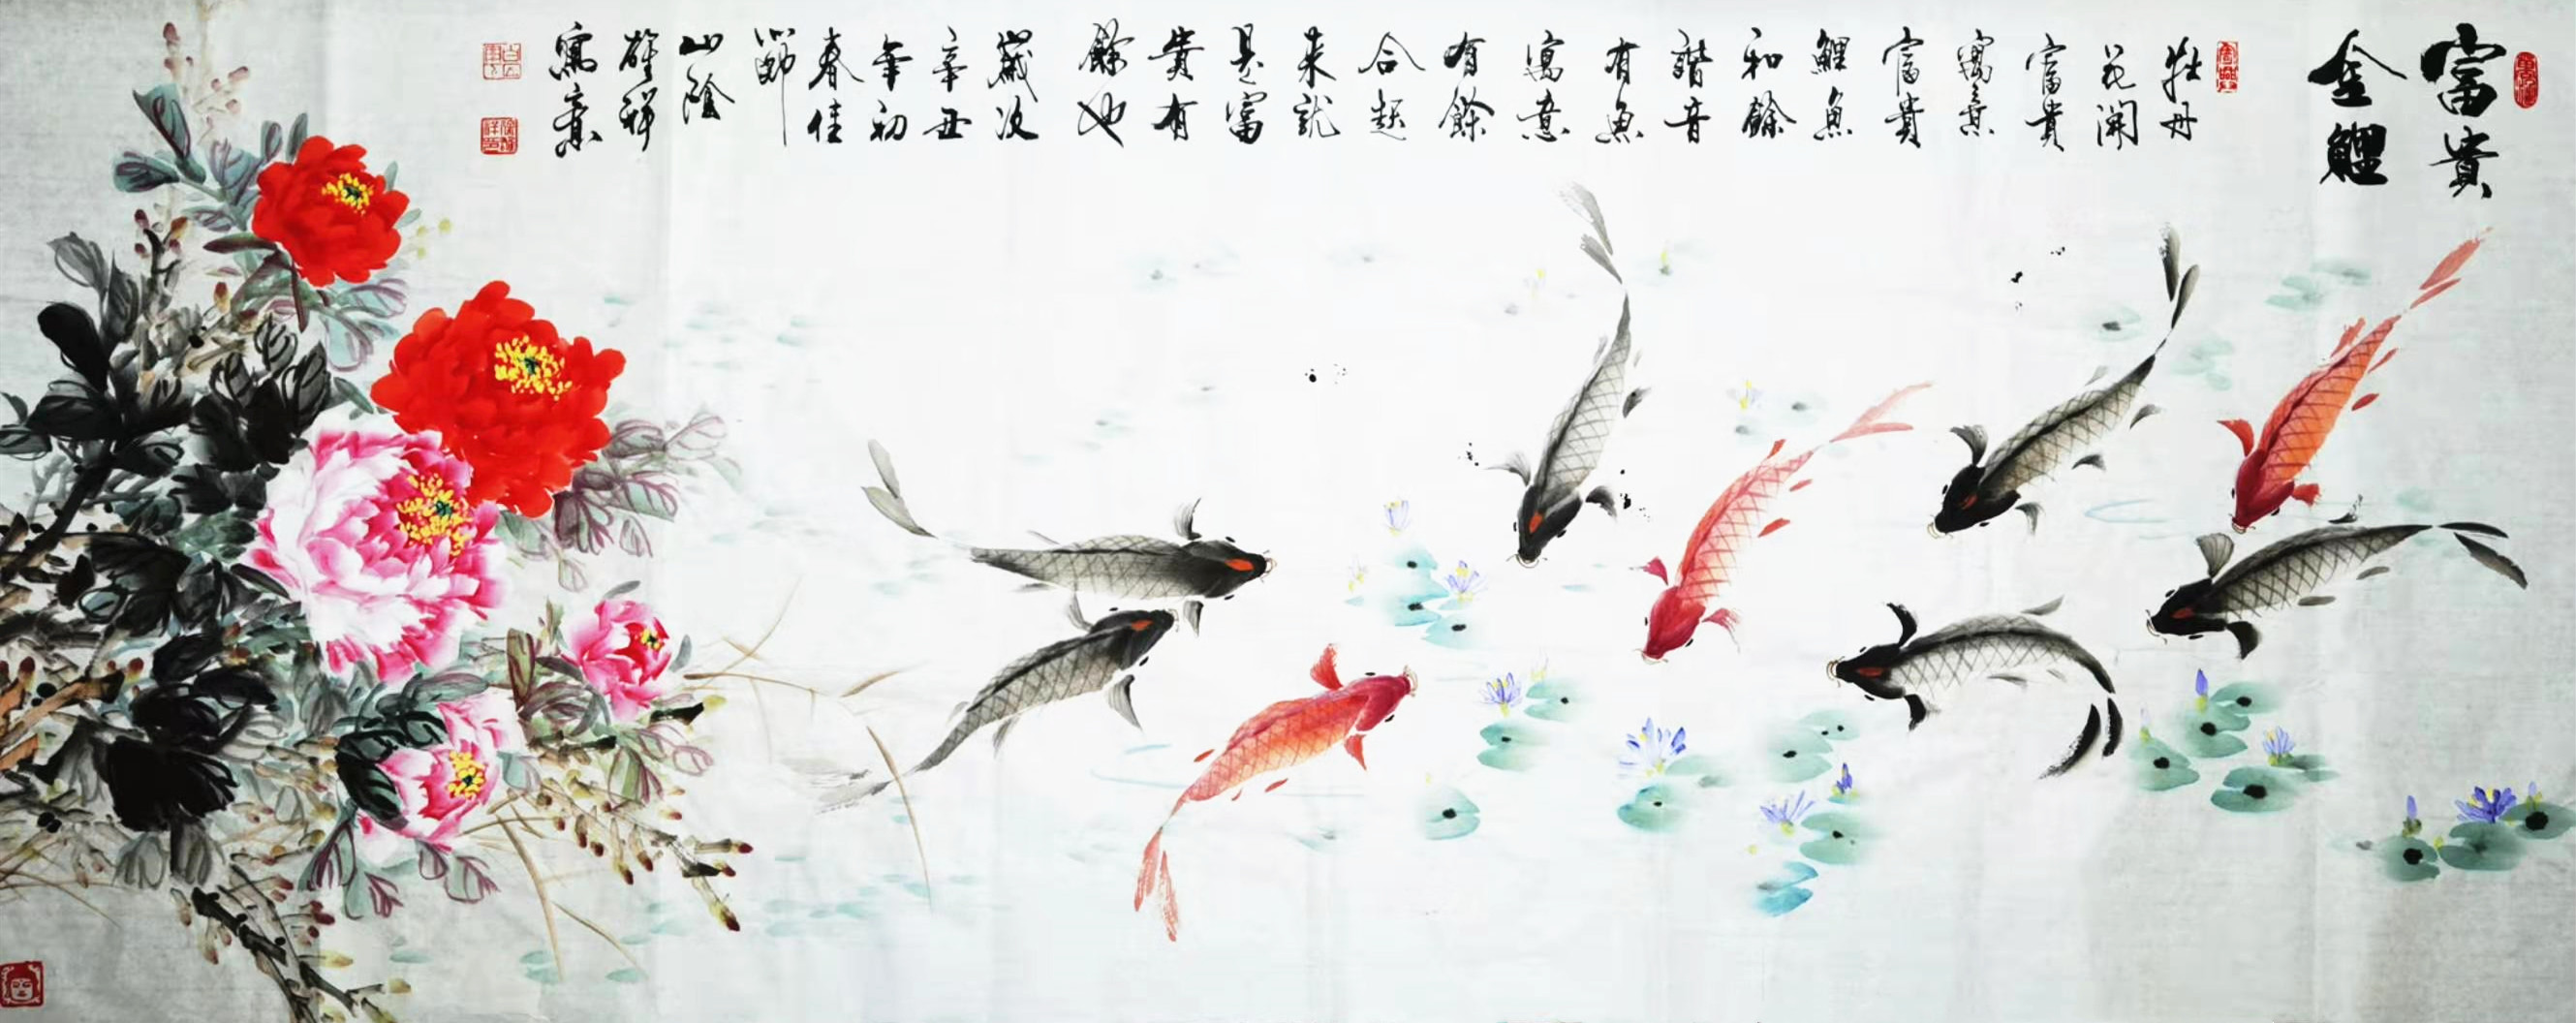 富貴
金鯉
牡丹
花開
富貴
寓意
富貴
鯉魚
和餘
諧音
有魚
寓意
有餘
合起
来就
是富
貴有
餘也
歲次
辛丑
年初
春佳
節
山陰
祥
寫意